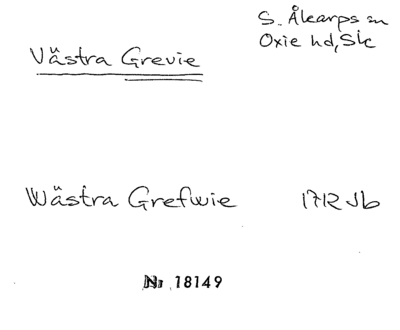 S. Åkarps sn
Oxie hd, Sk
Västra Grevie
Wästra Grefwie 1712 Jb
Nr 18149